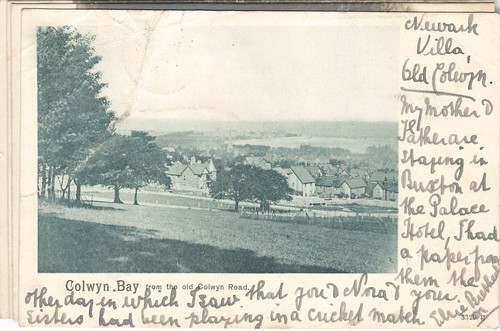 Newark
Villa,
Old Colwyn.
My Mother &
Father are
staying in
Buxton at
the Palace
Hotel, I had
a paper from
them the
other day in which I saw that you & Nora & your
sisters had been playing in a cricket match.
Elsie
Colwyn Bay from the old Colwyn Road.